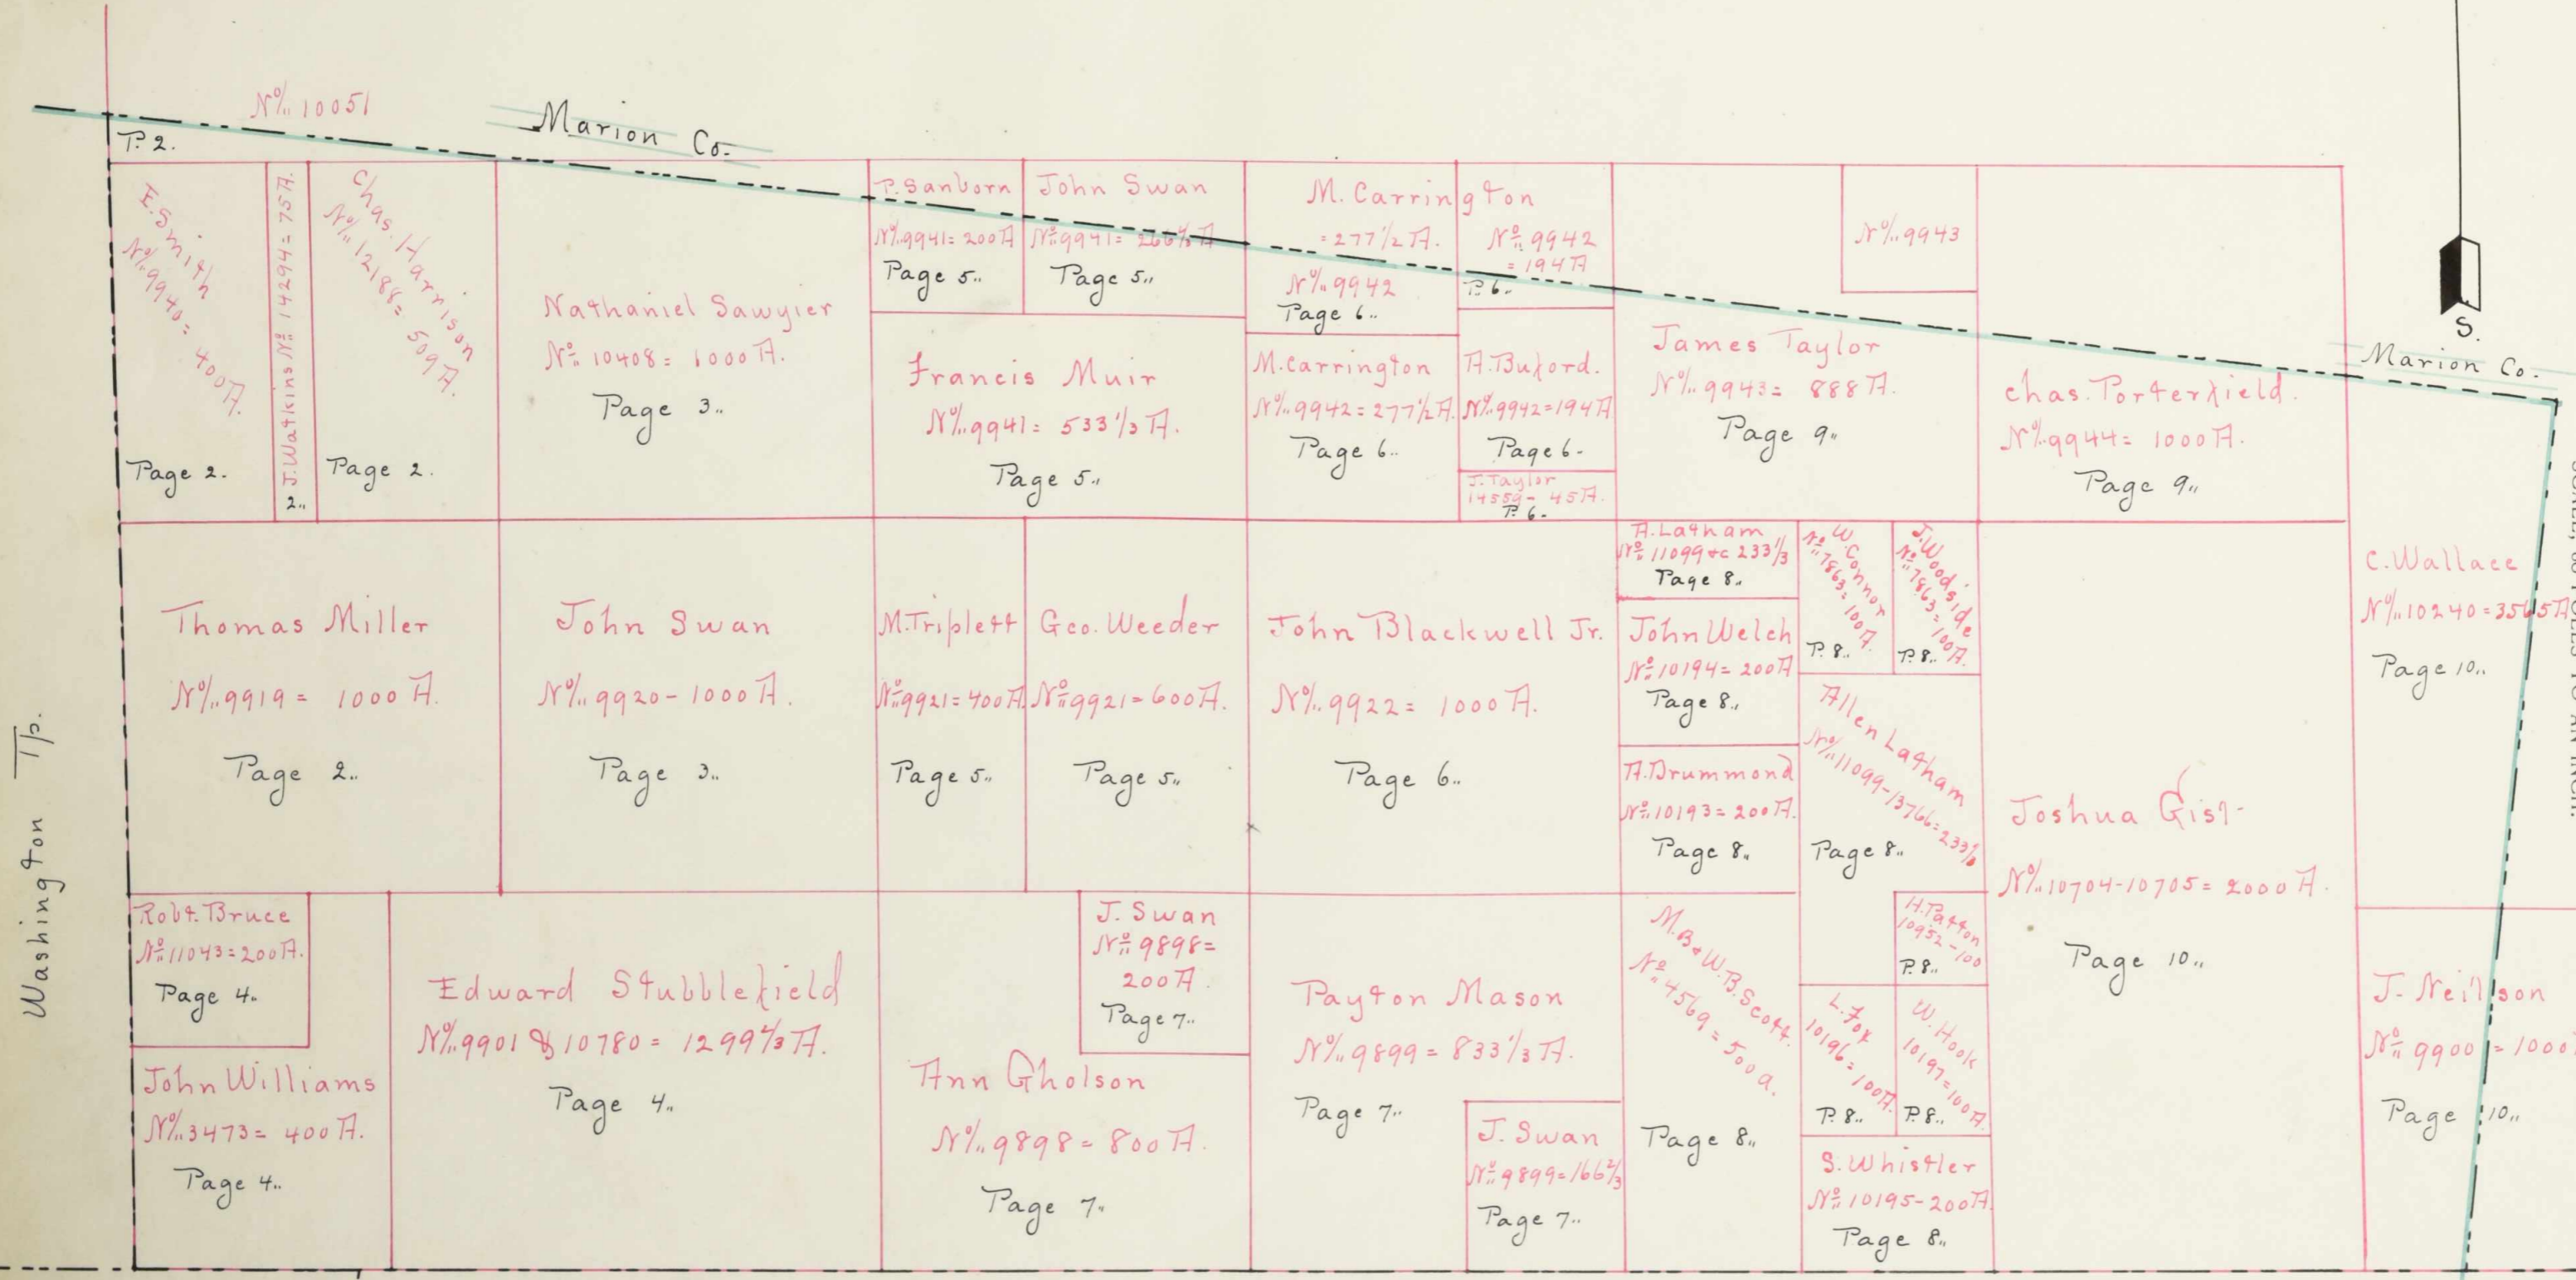 No. 10051
Marion Co.
P. 2.
E. Smith
No. 9940 = 400 A.
Page 2.
J. Watkins No. 14294 = 75 A.
2.
Chas. Harrison
No. 12188 = 509 A.
Page 2.
Nathaniel Sawyier
No. 10408 = 1000 A.
Page 3.
P. Sanborn
No. 9941 = 200 A
Page 5.
John Swan
No. 9941 = 266 2/3 A
Page 5.
Francis Muir
No. 9941 = 533 1/3 A.
Page 5.
M. Carrington
= 277 1/2 A.
No. 9942
Page 6.
No. 9942
= 194 A
P. 6.
M. Carrington
No. 9942 = 277 1/2 A.
Page 6.
A. Buford.
No. 9942 = 194 A
Page 6.
J. Taylor
14559 - 45 A.
P. 6.
James Taylor
No. 9943 = 888 A.
Page 9.
No. 9943
Chas. Porterfield.
No. 9944 = 1000 A.
Page 9.
S.
Marion Co.
Washington Tp.
Thomas Miller
No. 9919 = 1000 A.
Page 2.
John Swan
No. 9920 - 1000 A.
Page 3.
M. Triplett
No. 9921 = 400 A
Page 5.
Geo. Weeder
No. 9921 = 600 A.
Page 5.
John Blackwell Jr.
No. 9922 = 1000 A.
Page 6.
A. Latham
No. 11099 &c 233 1/3
Page 8.
John Welch
No. 10194 = 200 A
Page 8.
A. Drummond
No. 10193 = 200 A.
Page 8.
W. Connor
No. 7863 = 100 A.
P. 8.
J. Woodside
No. 7863 = 100 A.
P. 8.
Allen Latham
No. 11099 - 13766 = 233 1/3
Page 8.
Joshua Gist
No. 10704 - 10705 = 2000 A.
Page 10.
C. Wallace
No. 10240 = 3565 A
Page 10.
Robt. Bruce
No. 11043 = 200 A.
Page 4.
John Williams
No. 3473 = 400 A.
Page 4.
Edward Stubblefield
No. 9901 & 10780 = 1299 2/3 A.
Page 4.
J. Swan
No. 9898 =
200 A.
Page 7.
Ann Gholson
No. 9898 = 800 A.
Page 7.
Payton Mason
No. 9899 = 833 1/3 A.
Page 7.
J. Swan
No. 9899 = 166 2/3
Page 7.
M. B. & W. B. Scott.
No. 4569 = 500 a.
Page 8.
H. Patton
10952 - 100
P. 8.
L. Fox
10196 = 100 A.
P. 8.
W. Hook
10197 = 100 A.
P. 8.
S. Whistler
No. 10195 - 200 A.
Page 8.
J. Neilson
No. 9900 = 1000
Page 10.